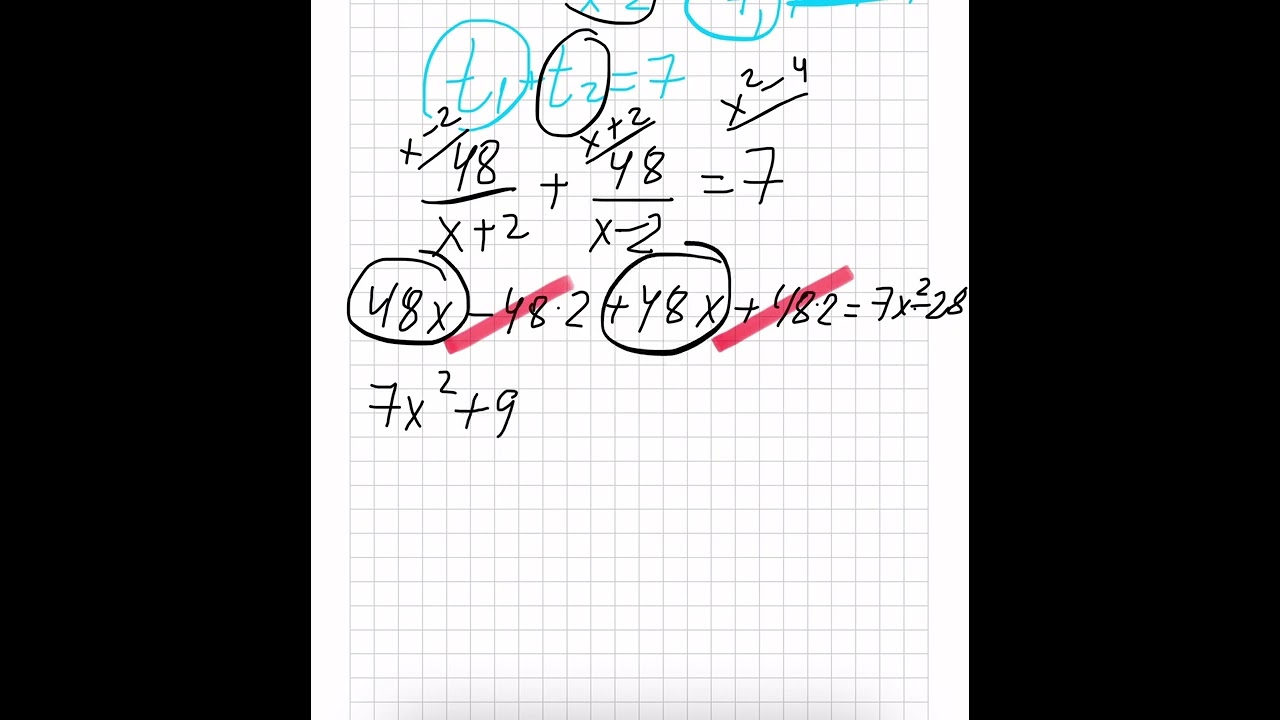 t₁+t₂=7
x-2 x+2 x²-4
48/(x+2) + 48/(x-2) = 7
48x-48·2+48x+48·2=7x²-28
7x²+9